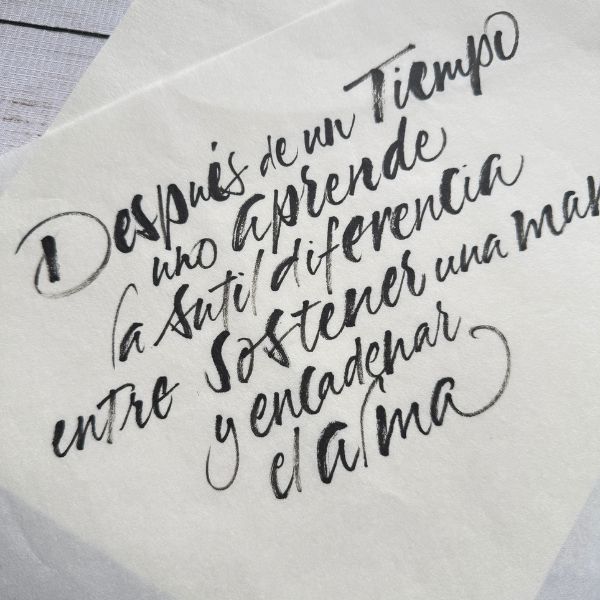 Después de un Tiempo
uno aprende
la sutil diferencia
entre sostener una man
y encadenar
el alma